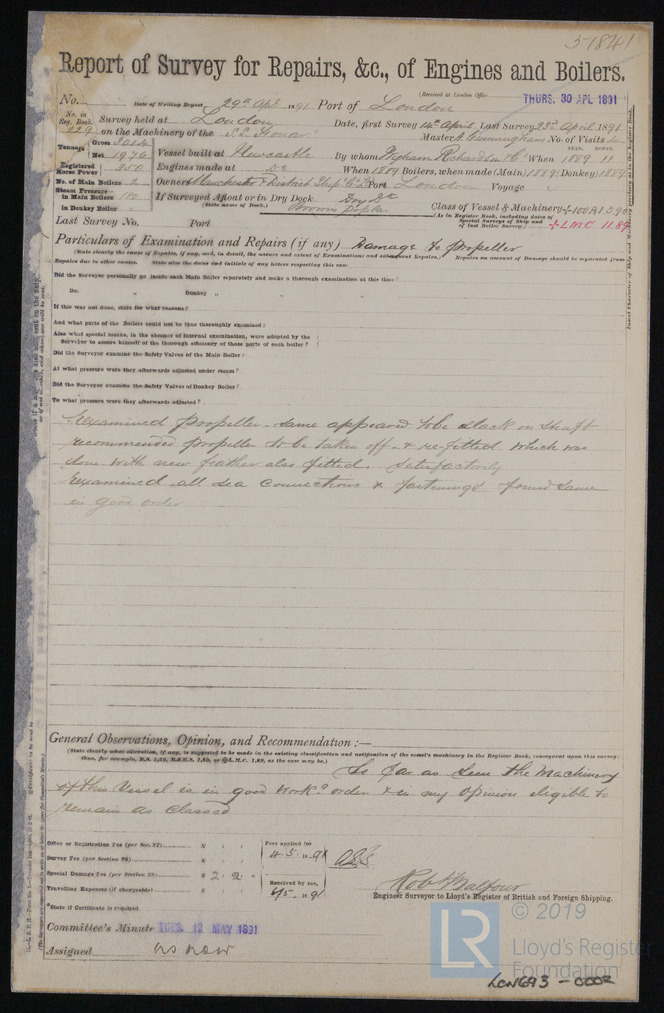 51841
Report of Survey for Repairs, &c., of Engines and Boilers.
(Received at London Office THURS. 30 APL 1891
No. Date of Writing Report 29th Apl 1891 Port of London
No. in Reg. Book. Survey held at London Date, first Survey 14th April Last Survey 23rd April 1891
229 on the Machinery of the "S.S. Master A. Cunningham No. of Visits
Tonnage Gross Net 1976 Vessel built at Newcastle By whom Wigham Richardson & Co When 1889 11
Registered Horse Power 350 Engines made at Do When 1889 Boilers, when made (Main) 1889 (Donkey) 1889
No. of Main Boilers 2 Owners Port London Voyage
Steam Pressure in Main Boilers If Surveyed Afloat or in Dry Dock Dry Dk Class of Vessel & Machinery +100A1
in Donkey Boiler (State name of Dock.) (As in Register Book, including dates of Special Surveys of Ship and of last Boiler Survey.) +LMC 11.89
Last Survey No. Port
Particulars of Examination and Repairs (if any) Damage to propeller
(State clearly the cause of Repairs, if any, and, in detail, the nature and extent of Examinations and subsequent Repairs.) Repairs on account of Damage should be separated from
Repairs due to other causes. State also the dates and initials of any letters respecting this case
Did the Surveyor personally go inside each Main Boiler separately and make a thorough examination at this time?
Do. Donkey " "
If this was not done, state for what reasons?
And what parts of the Boilers could not be thus thoroughly examined?
Also what special means, in the absence of internal examination, were adopted by the
Surveyor to assure himself of the thorough efficiency of those parts of each boiler?
Did the Surveyor examine the Safety Valves of the Main Boiler?
At what pressure were they afterwards adjusted under steam?
Did the Surveyor examine the Safety Valves of Donkey Boiler?
To what pressure were they afterwards adjusted?
Examined propeller - same appeared to be slack on shaft
recommended propeller to be taken off & re-fitted which was
done with new feather also fitted. Satisfactorily
Examined all sea connections & fastenings found same
in good order
General Observations, Opinion, and Recommendation :—
(State clearly what alteration, if any, is suggested to be made in the existing classification and notification of the vessel's machinery in the Register Book, consequent upon this survey:
thus, for example, B.S. 1,89, B.&M.S. 1,89, or +L.M.C. 1,89, as the case may be.)
So far as seen the Machinery
of this Vessel is in good workg order & in my opinion eligible to
remain as Classed
Office or Registration Fee (per Sec. 27) £ : : Fees applied for
Survey Fee (per Section 28) £ : : 4.5. 1891
Special Damage Fee (per Section 28) £ 2 : 2 : Received by me,
Travelling Expenses (if chargeable) £ : : 6/5. 1891
Robt Balfour
Engineer Surveyor to Lloyd's Register of British and Foreign Shipping.
*State if Certificate is required.
Committee's Minute TUES. 12 MAY 1891
Assigned as now
© 2019
LR Lloyd's Register
Foundation
LON693 - 0002